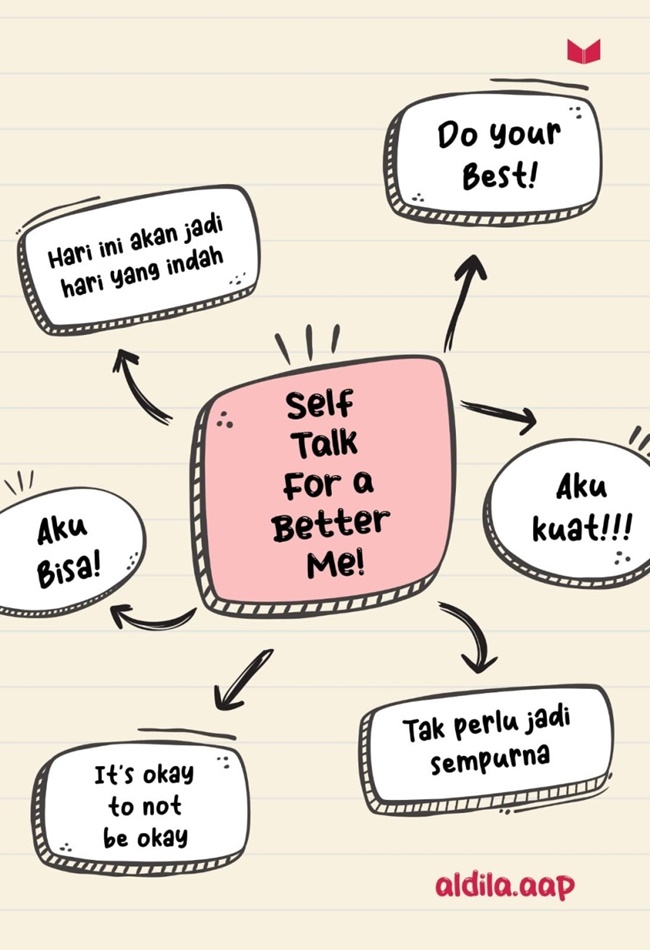 Do your
Best!
Hari ini akan jadi
hari yang indah
Self
Talk
For a
Better
Me!
Aku
kuat!!!
Aku
Bisa!
Tak perlu jadi
sempurna
It's okay
to not
be okay
aldila.aap